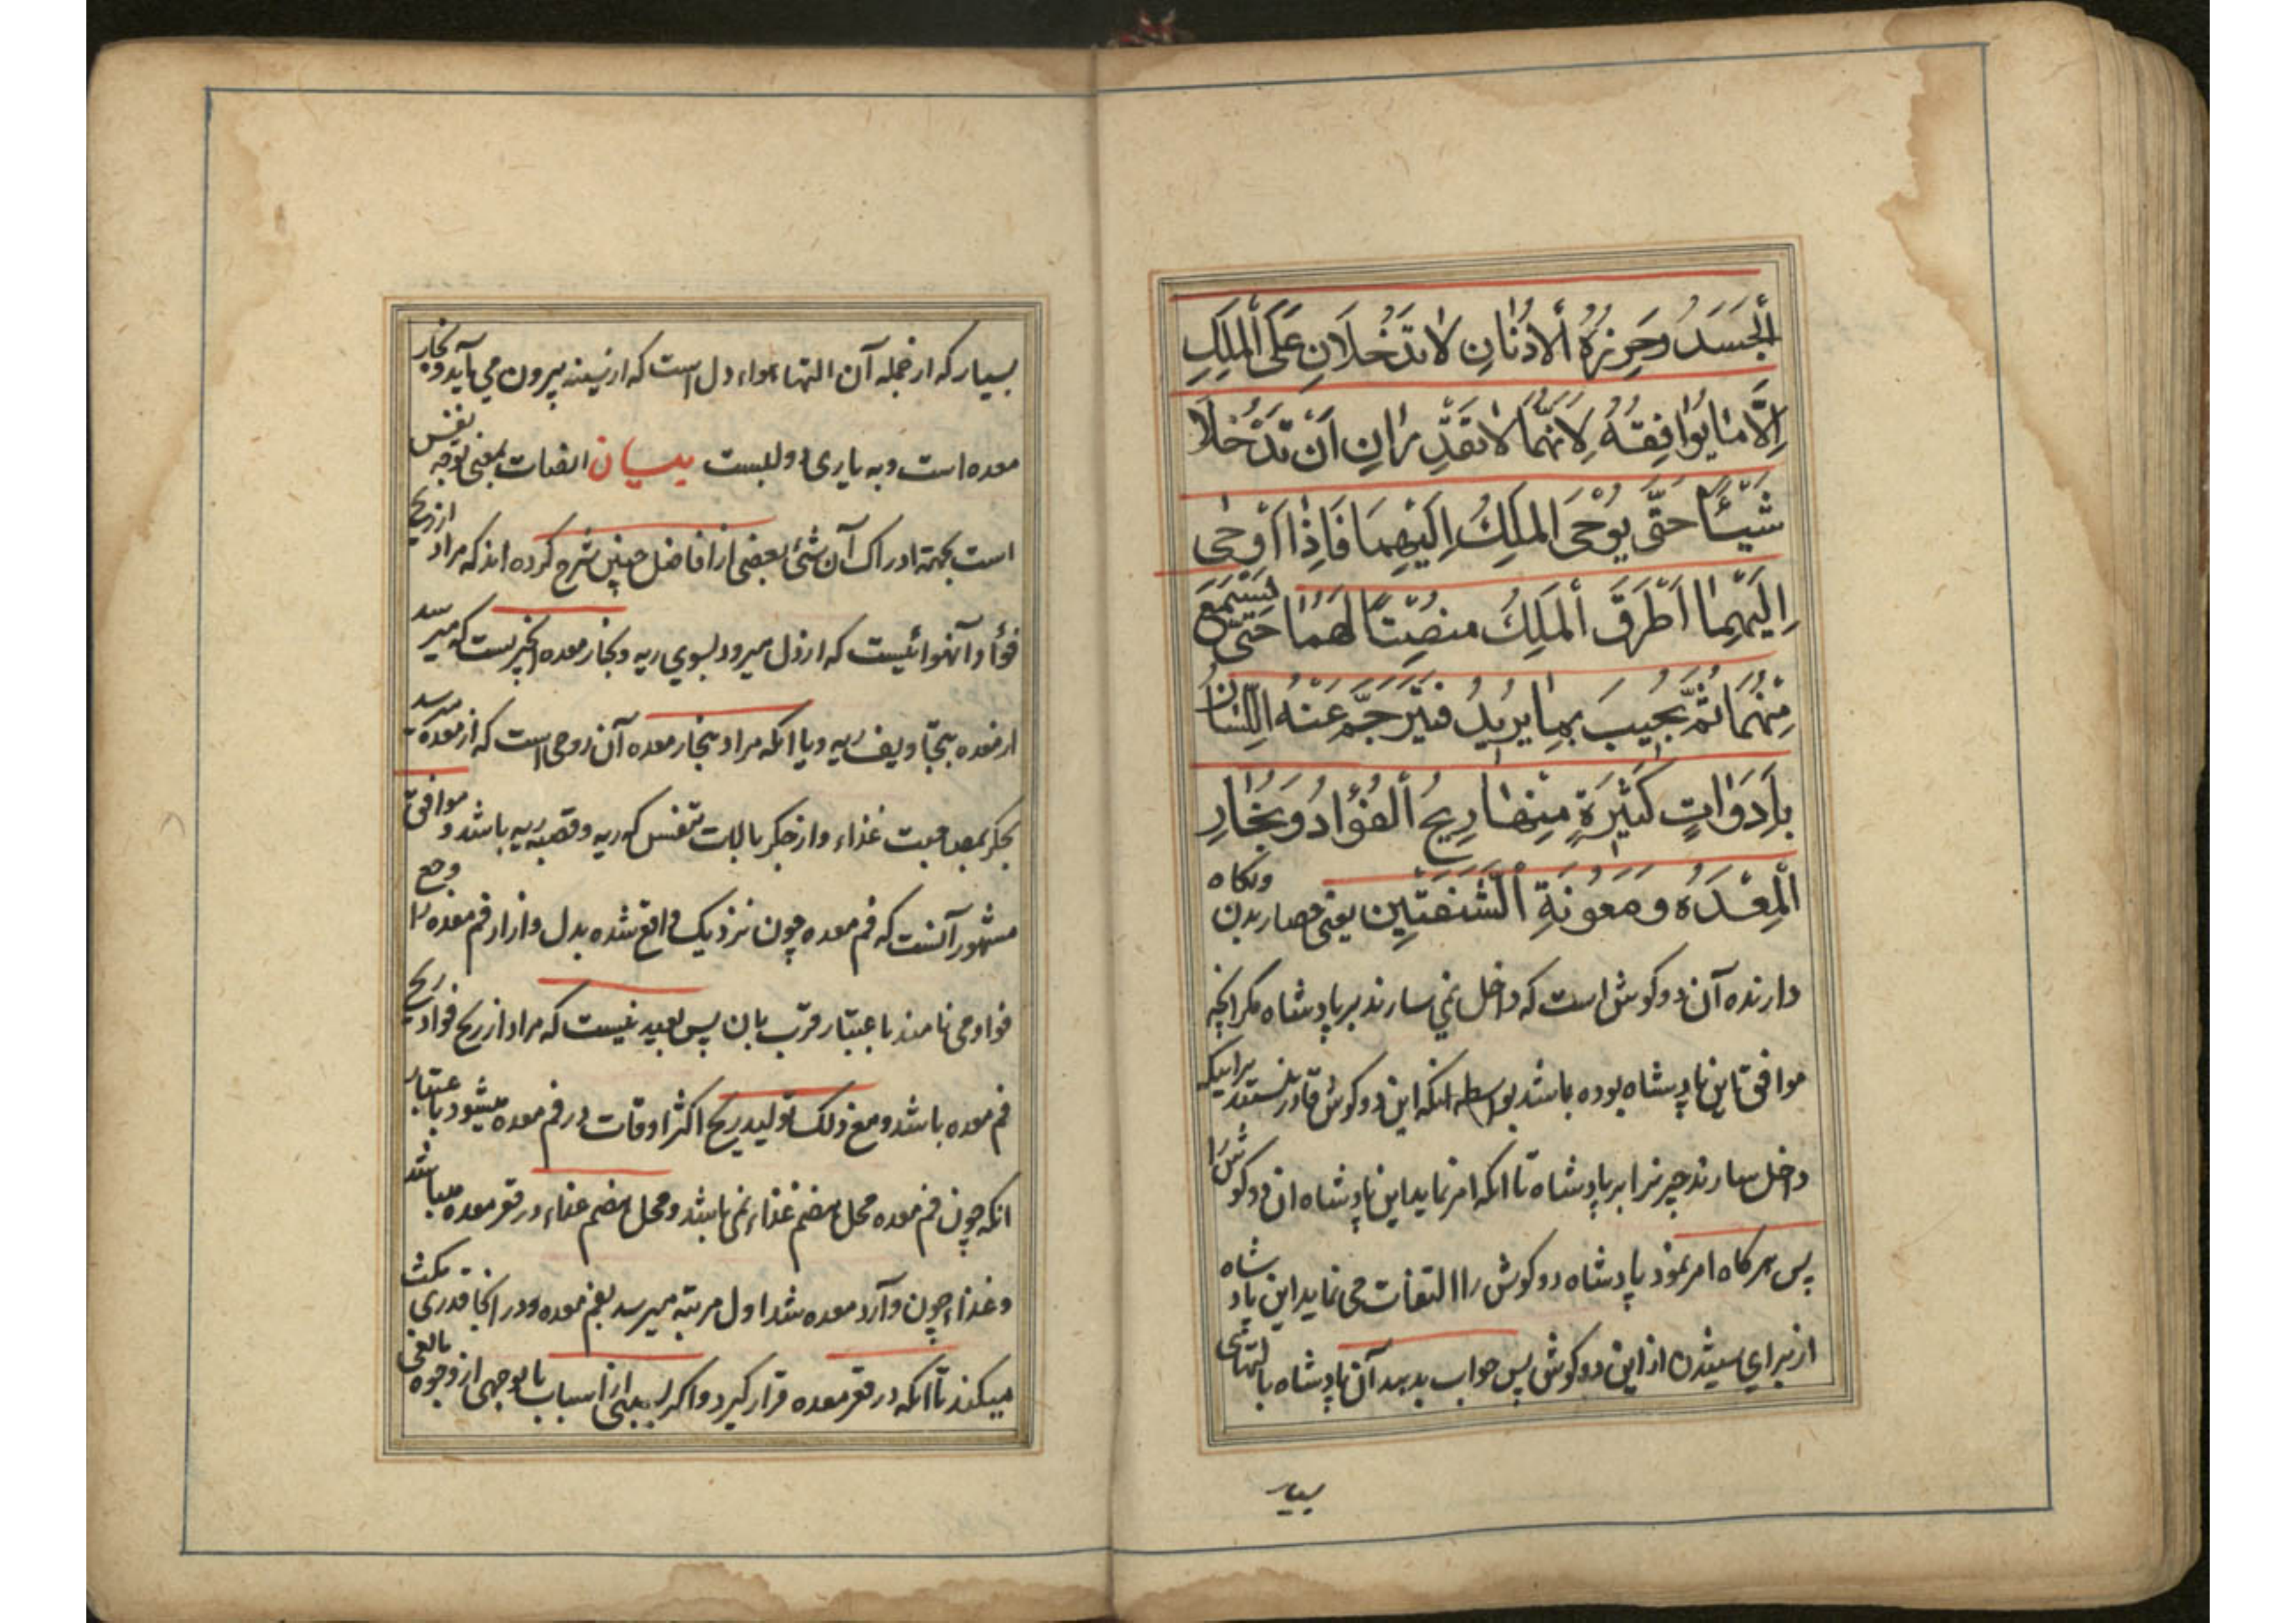 اَلْجَسَدُ وَحَرِزَةُ اَلْاُذُنَانِ لَا تَدْخُلَانِ عَلَى اَلْمَلِكِ
اِلَّا مَا يُوَافِقُهُ لِاَنَّهُمَا لَا تَقْدِرَانِ اَنْ تَدْخُلَا
شَيْئًا حَتَّى يُوْحَى المَلِكُ اِلَيْهِمَا فَاِذَا اَوْحَى
اِلَيْهِمَا اَطْرَقَ اَلْمَلِكُ مُنْصِتًا لَهُمَا حَتَّى يَسْتَمِعَ
مِنْهُمَا ثُمَّ يُجِيبَ بِمَا يُرِيدُ فَيُتَرْجِمُ عَنْهُ اللِّسَانُ
بِاَدَوَاتٍ كَثِيْرَةٍ مِنْهَا رِيحُ اَلْفُؤَادُ وَبُخَارِ
اَلْمِعْدَهُ وَ مَعُوْنَةِ اَلْشَّفَتَيْنِ يعنى حصار بدن ونكاه
دارنده آن دو كوش است كه داخل نمي سازند بر پادشاه مكر انچه
موافق تاين پادشاه بوده باشد بواسطه انكه اين دو كوش قادر نيستند برانيكه
داخل سازند چيزيرا بر پادشاه تا انكه امر نمايد اين پادشاه ان دو كوش را
پس هر كاه امر نمود پادشاه دو كوش را التفات مى نمايد اين پادشاه
از براي شنيدن از اين دو كوش پس جواب بدهد آن پادشاه بالتهاى
بسيار
بسيار كه از جمله آن التهاء هواء دل است كه از سينه بيرون مي آيد و بخار
معده است و به ياري دو لبست بيان التفات بمعنى توجه نفس
است بجهته ادراك آن شئ بعضى از افاضل چنين شرح كرده اند كه مراد از ريح
فؤاد آنهوائيست كه از دل ميرود بسوي ريه و بخار معده بخيريست كه ميرسد
از معده بتجاويف ريه و يا انكه مراد ببخار معده آن روحى است كه از معده ميرسد
بجكر بمصاحبت غذاء و از جكر بالات تنفس كه ريه و قصبه ريه باشد و موافق
مشهور آنست كه فم معده چون نزديك واقع شده بدل و ازار فم معده را وجع
فواد مى نامند باعتبار قرب بان پس بعيد نيست كه مراد از ريح فواد ريح
فم معده باشد و مع ذلك توليد ريح اكثر اوقات در فم معده ميشود باعتبار
انكه چون فم معده محل هضم غذاء نمى باشد و محل هضم غذاء در قعر معده ميباشد
و غذاء چون وارد معده شد اول مرتبه ميرسد بفم معده و در انجا قدرى مكث
ميكند تا انكه در قعر معده قرار كيرد و اكر بسببى از اسباب يا بوجهى از وجوه مانعى